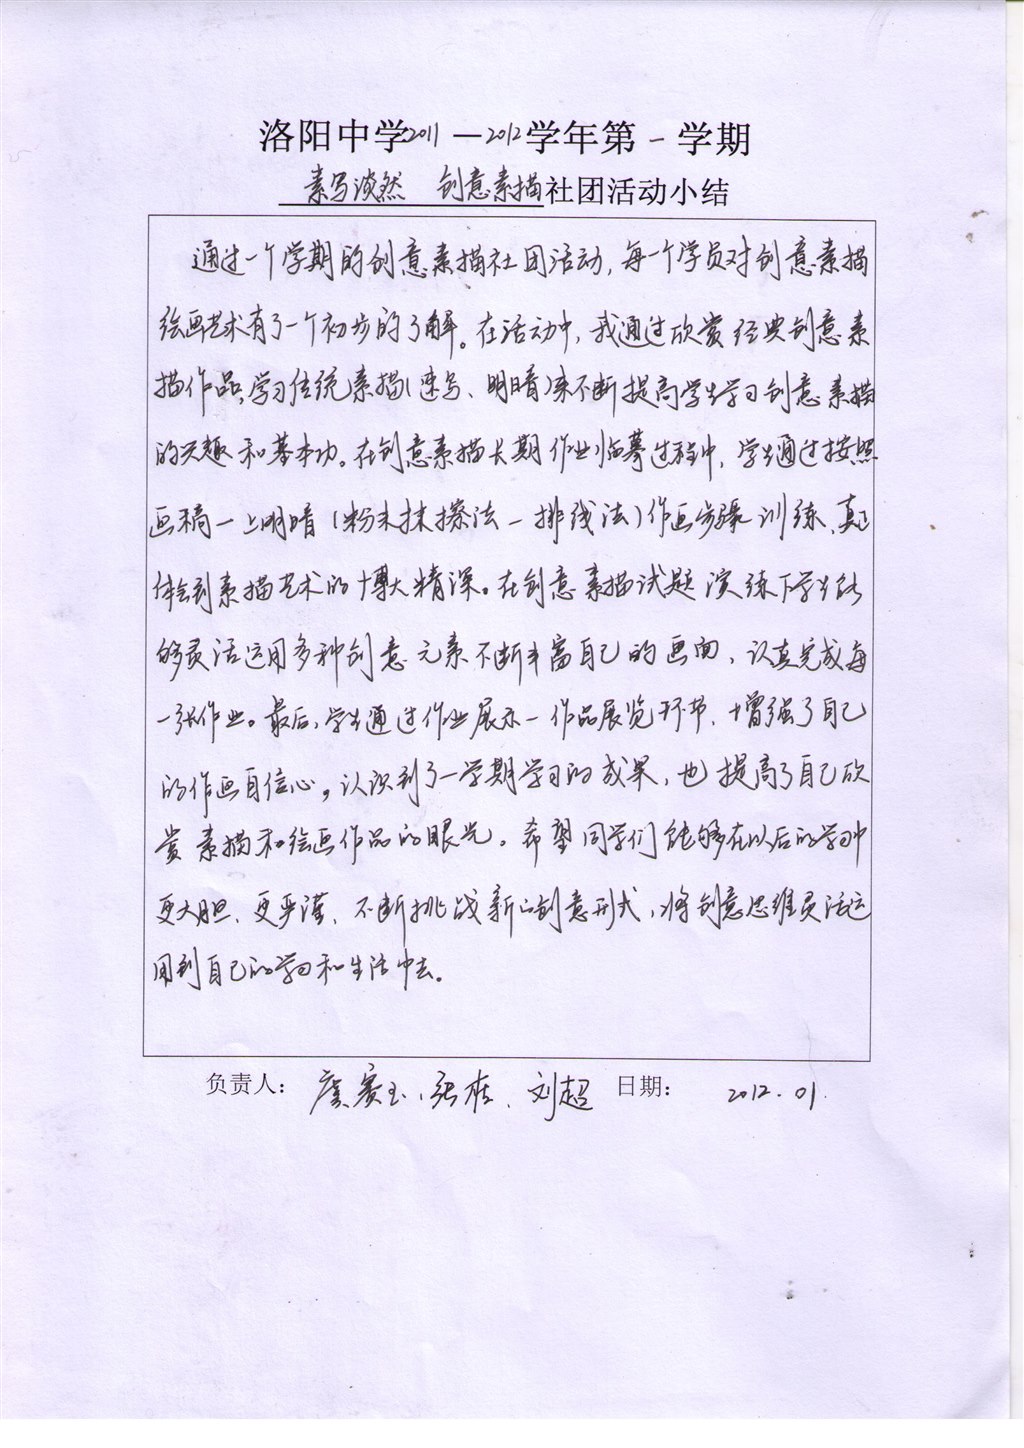 洛阳中学2011—2012学年第一学期
素写淡然 创意素描社团活动小结
通过一个学期的创意素描社团活动,每一个学员对创意素描
绘画艺术有了一个初步的了解。在活动中,我通过欣赏经典创意素
描作品,学习传统素描(速写、明暗)来不断提高学生学习创意素描
的兴趣和基本功。在创意素描长期作业临摹过程中,学生通过按照
画稿一上明暗(粉末抹擦法一排线法)作画步骤训练,真正
体会到素描艺术的博大精深。在创意素描试题演练下学生能
够灵活运用多种创意元素不断丰富自己的画面,认真完成每
一张作业。最后,学生通过作业展示一作品展览环节,增强了自己
的作画自信心,认识到了一学期学习的成果,也提高了自己欣
赏素描和绘画作品的眼光。希望同学们能够在以后的学习中
更大胆、更严谨、不断挑战新的创意形式,将创意思维灵活运
用到自己的学习和生活中去。
负责人: 虞赛玉、张桂、刘超 日期: 2012.01